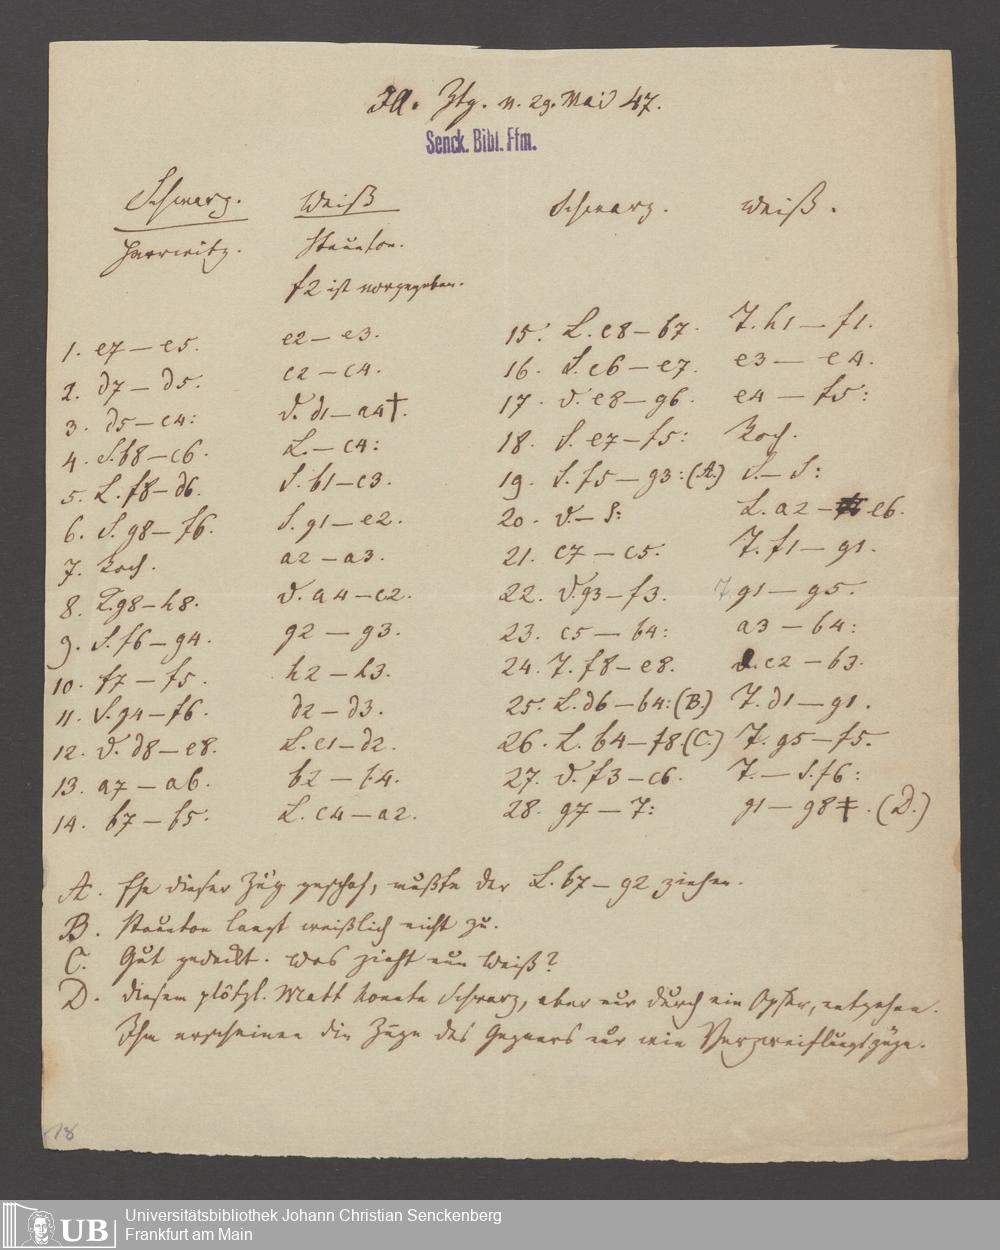 Ill. Ztg. v. 29. Mai 47.
Senck. Bibl. Ffm.
Schwarz. Weiß Schwarz. Weiß.
Harrwitz. Staunton.
f2 ist vorgegeben.
1. e7 — e5. e2 — e3.
2. d7 — d5. c2 — c4.
3. d5 — c4: D. d1 — a4†.
4. S. b8 — c6. L. — c4:
5. L. f8 — d6. S. b1 — c3.
6. S. g8 — f6. S. g1 — e2.
7. Roch. a2 — a3.
8. K. g8 — h8. D. a4 — c2.
9. S. f6 — g4. g2 — g3.
10. f7 — f5. h2 — h3.
11. S. g4 — f6. d2 — d3.
12. D. d8 — e8. L. c1 — d2.
13. a7 — a6. b2 — b4.
14. b7 — b5. L. c4 — a2.
15. L. c8 — b7. T. h1 — f1.
16. S. c6 — e7. e3 — e4.
17. D. e8 — g6. e4 — f5:
18. S. e7 — f5: Roch.
19. S. f5 — g3: (A.) S. — S:
20. D. — S: L. a2 — e6.
21. c7 — c5. T. f1 — g1.
22. D. g3 — f3. T. g1 — g5.
23. c5 — b4: a3 — b4:
24. T. f8 — e8. D. c2 — b3.
25. L. d6 — b4: (B.) T. d1 — g1.
26. L. b4 — f8 (C.) T. g5 — f5.
27. D. f3 — c6. T. — S. f6:
28. g7 — T: g1 — g8‡. (D.)
A. Ehe dieser Zug geschah, mußte der L. b7 — g2 ziehen.
B. Staunton langt weißlich nicht zu.
C. Gut gedeckt. Was zieht nun Weiß?
D. Diesem plötzl. Matt konnte Schwarz, aber nur durch ein Opfer, entgehen.
Ihm erscheinen die Züge des Gegners nur wie Verzweiflungszüge.
18
UB
Universitätsbibliothek Johann Christian Senckenberg
Frankfurt am Main